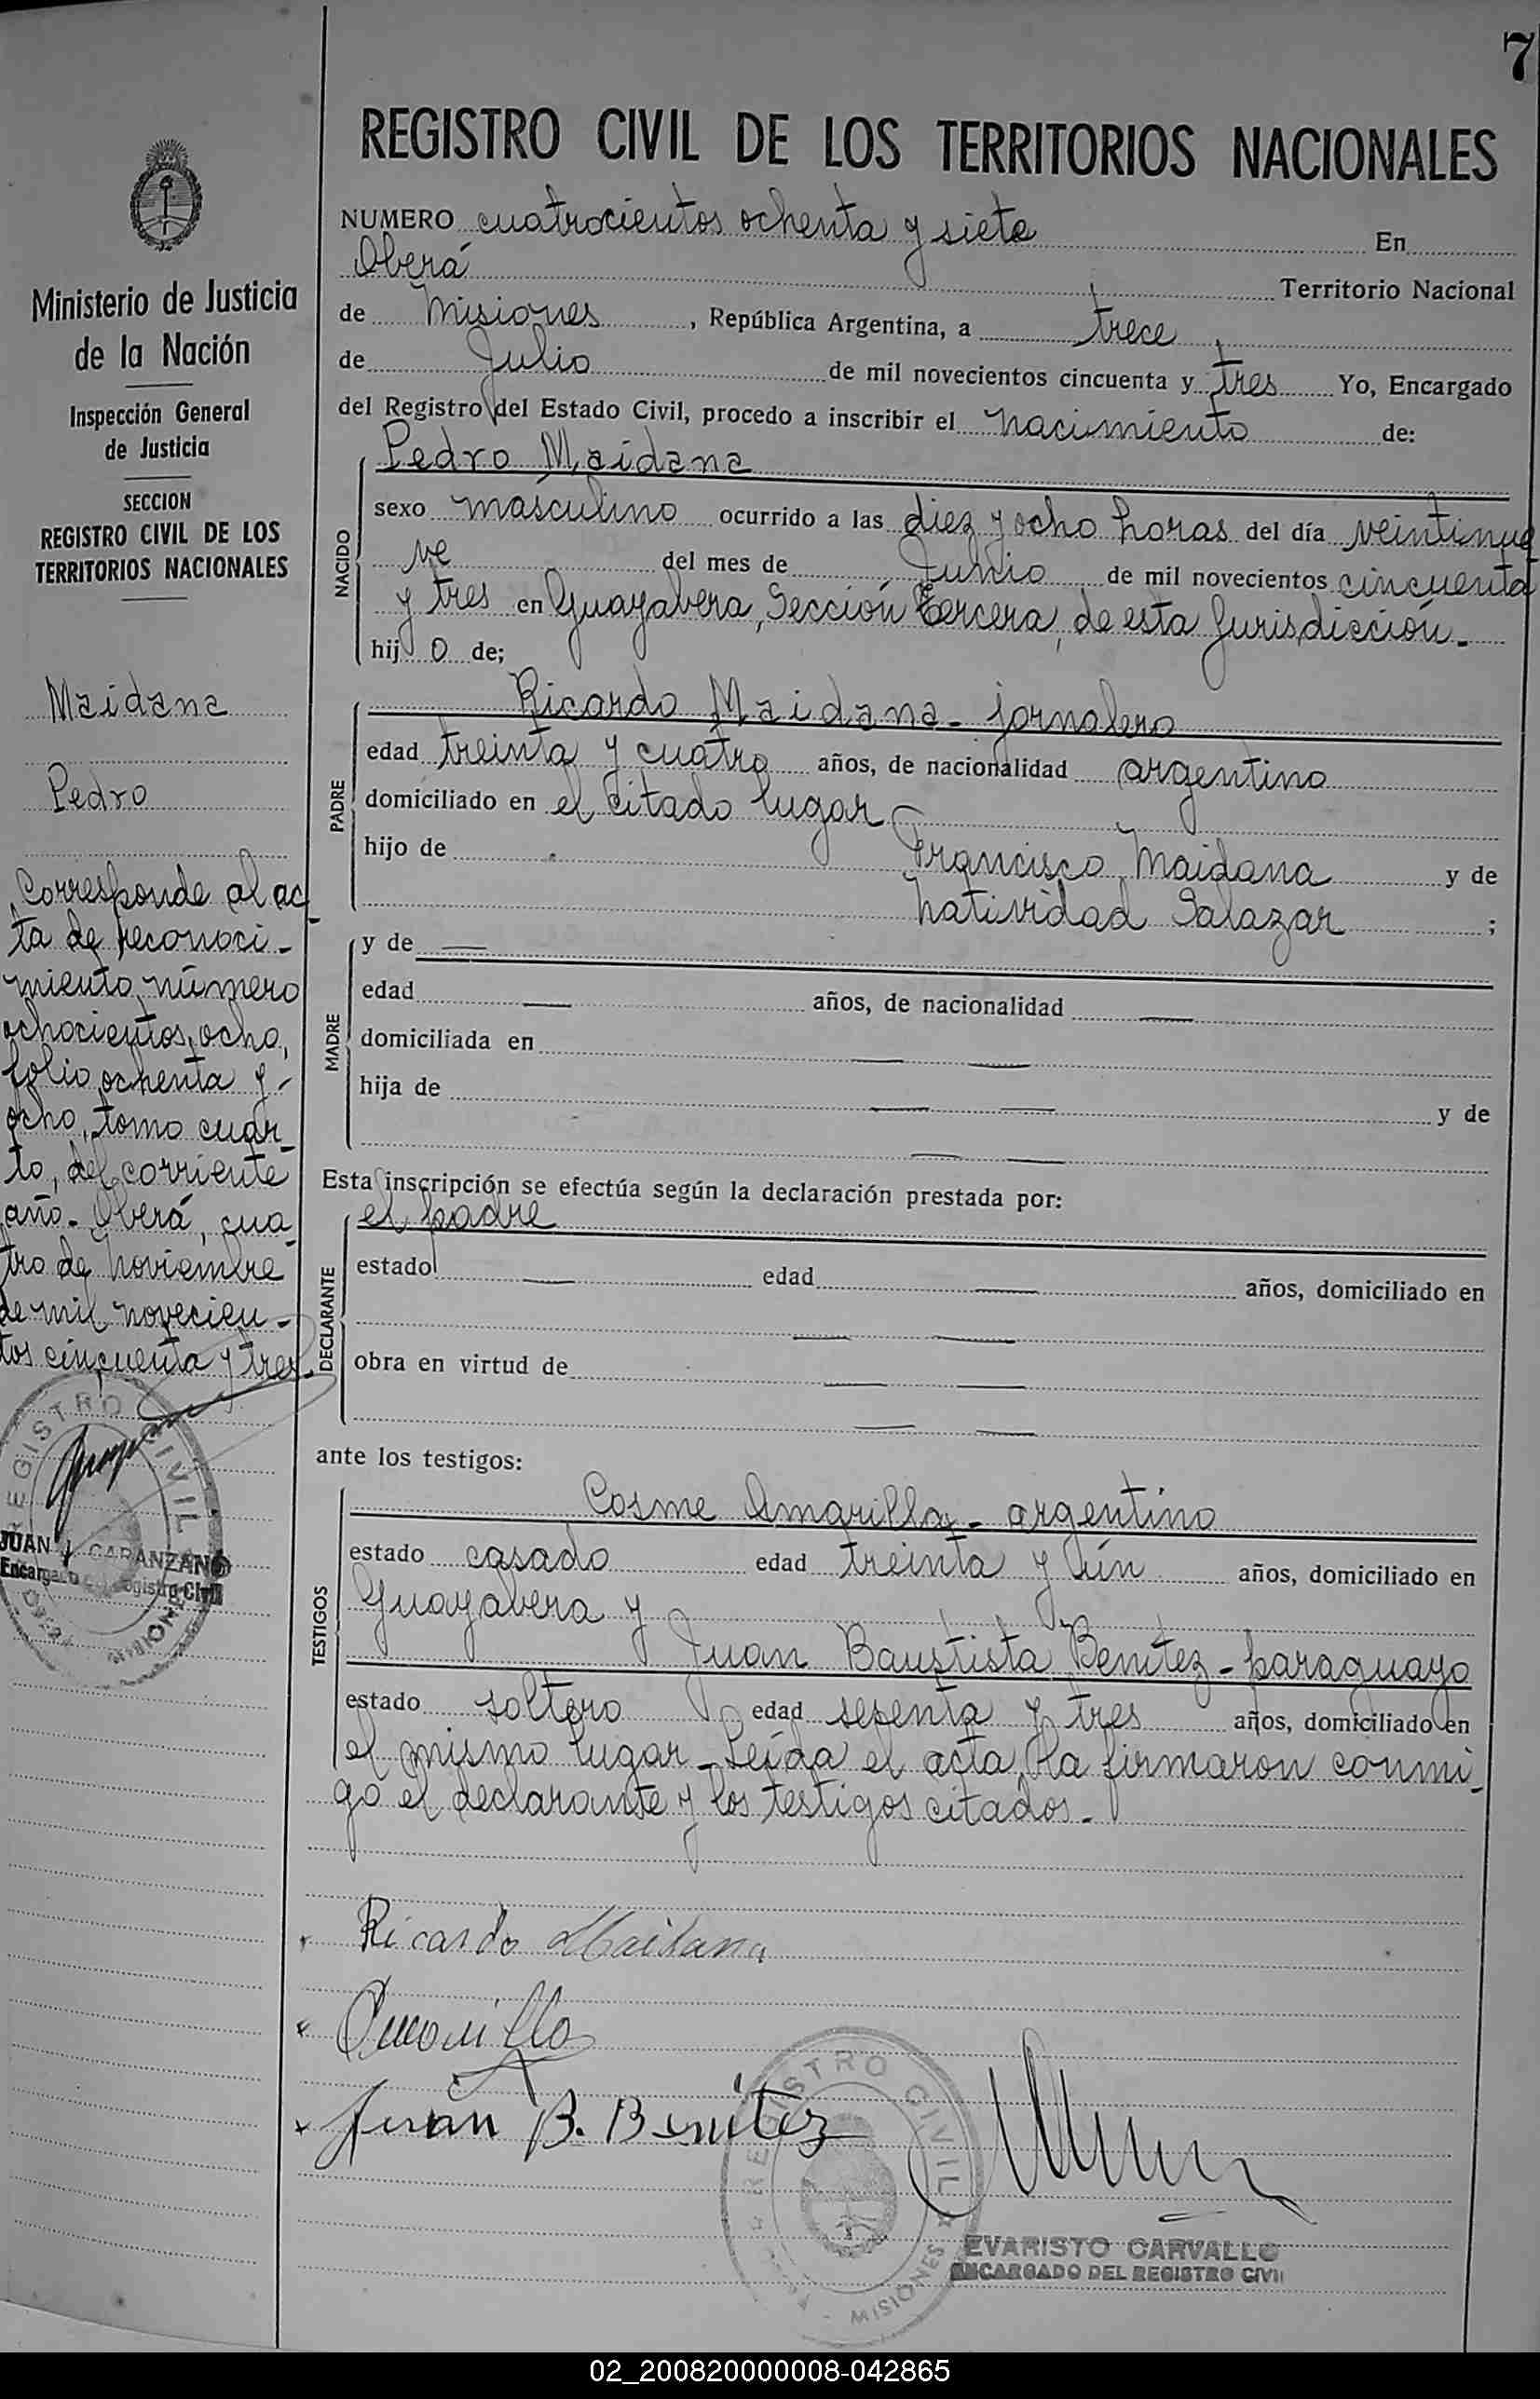 7
REGISTRO CIVIL DE LOS TERRITORIOS NACIONALES
NUMERO cuatrocientos ochenta y siete En
Oberá Territorio Nacional
de Misiones, República Argentina, a trece
de Julio de mil novecientos cincuenta y tres Yo, Encargado
del Registro del Estado Civil, procedo a inscribir el nacimiento de:
Pedro Maidana
NACIDO
sexo masculino ocurrido a las diez y ocho horas del día veintinue
ve del mes de Junio de mil novecientos cincuenta
y tres en Guayabera, Sección tercera, de esta Jurisdicción.-
hij o de;
Ricardo Maidana - jornalero
PADRE
edad treinta y cuatro años, de nacionalidad argentino
domiciliado en el citado lugar
hijo de Francisco Maidana y de
Natividad Salazar ;
MADRE
y de —
edad — años, de nacionalidad —
domiciliada en — —
hija de — — y de
— —
Esta inscripción se efectúa según la declaración prestada por:
el padre
DECLARANTE
estado — edad — años, domiciliado en
— —
obra en virtud de — —
— —
ante los testigos:
Cosme Amarilla - argentino
TESTIGOS
estado casado edad treinta y ún años, domiciliado en
Guayabera y
Juan Baustista Benítez - paraguayo
estado soltero edad sesenta y tres años, domiciliado en
el mismo lugar - Leída el acta, la firmaron conmi-
go el declarante y los testigos citados.-
Ricardo Maidana
Amarilla
Juan B. Benitez
REGISTRO CIVIL
MISIONES
EVARISTO CARVALLO
ENCARGADO DEL REGISTRO CIVIL
Ministerio de Justicia
de la Nación
Inspección General
de Justicia
SECCION
REGISTRO CIVIL DE LOS
TERRITORIOS NACIONALES
Maidana
Pedro
Corresponde al ac-
ta de reconoci-
miento, número
ochocientos ocho,
folio ochenta y
ocho, tomo cuar-
to, del corriente
año.- Oberá, cua-
tro de Noviembre
de mil novecien-
tos cincuenta y tres.
REGISTRO CIVIL
JUAN J. CARANZANO
Encargado del Registro Civil
OBERA MISIONES
02_200820000008-042865